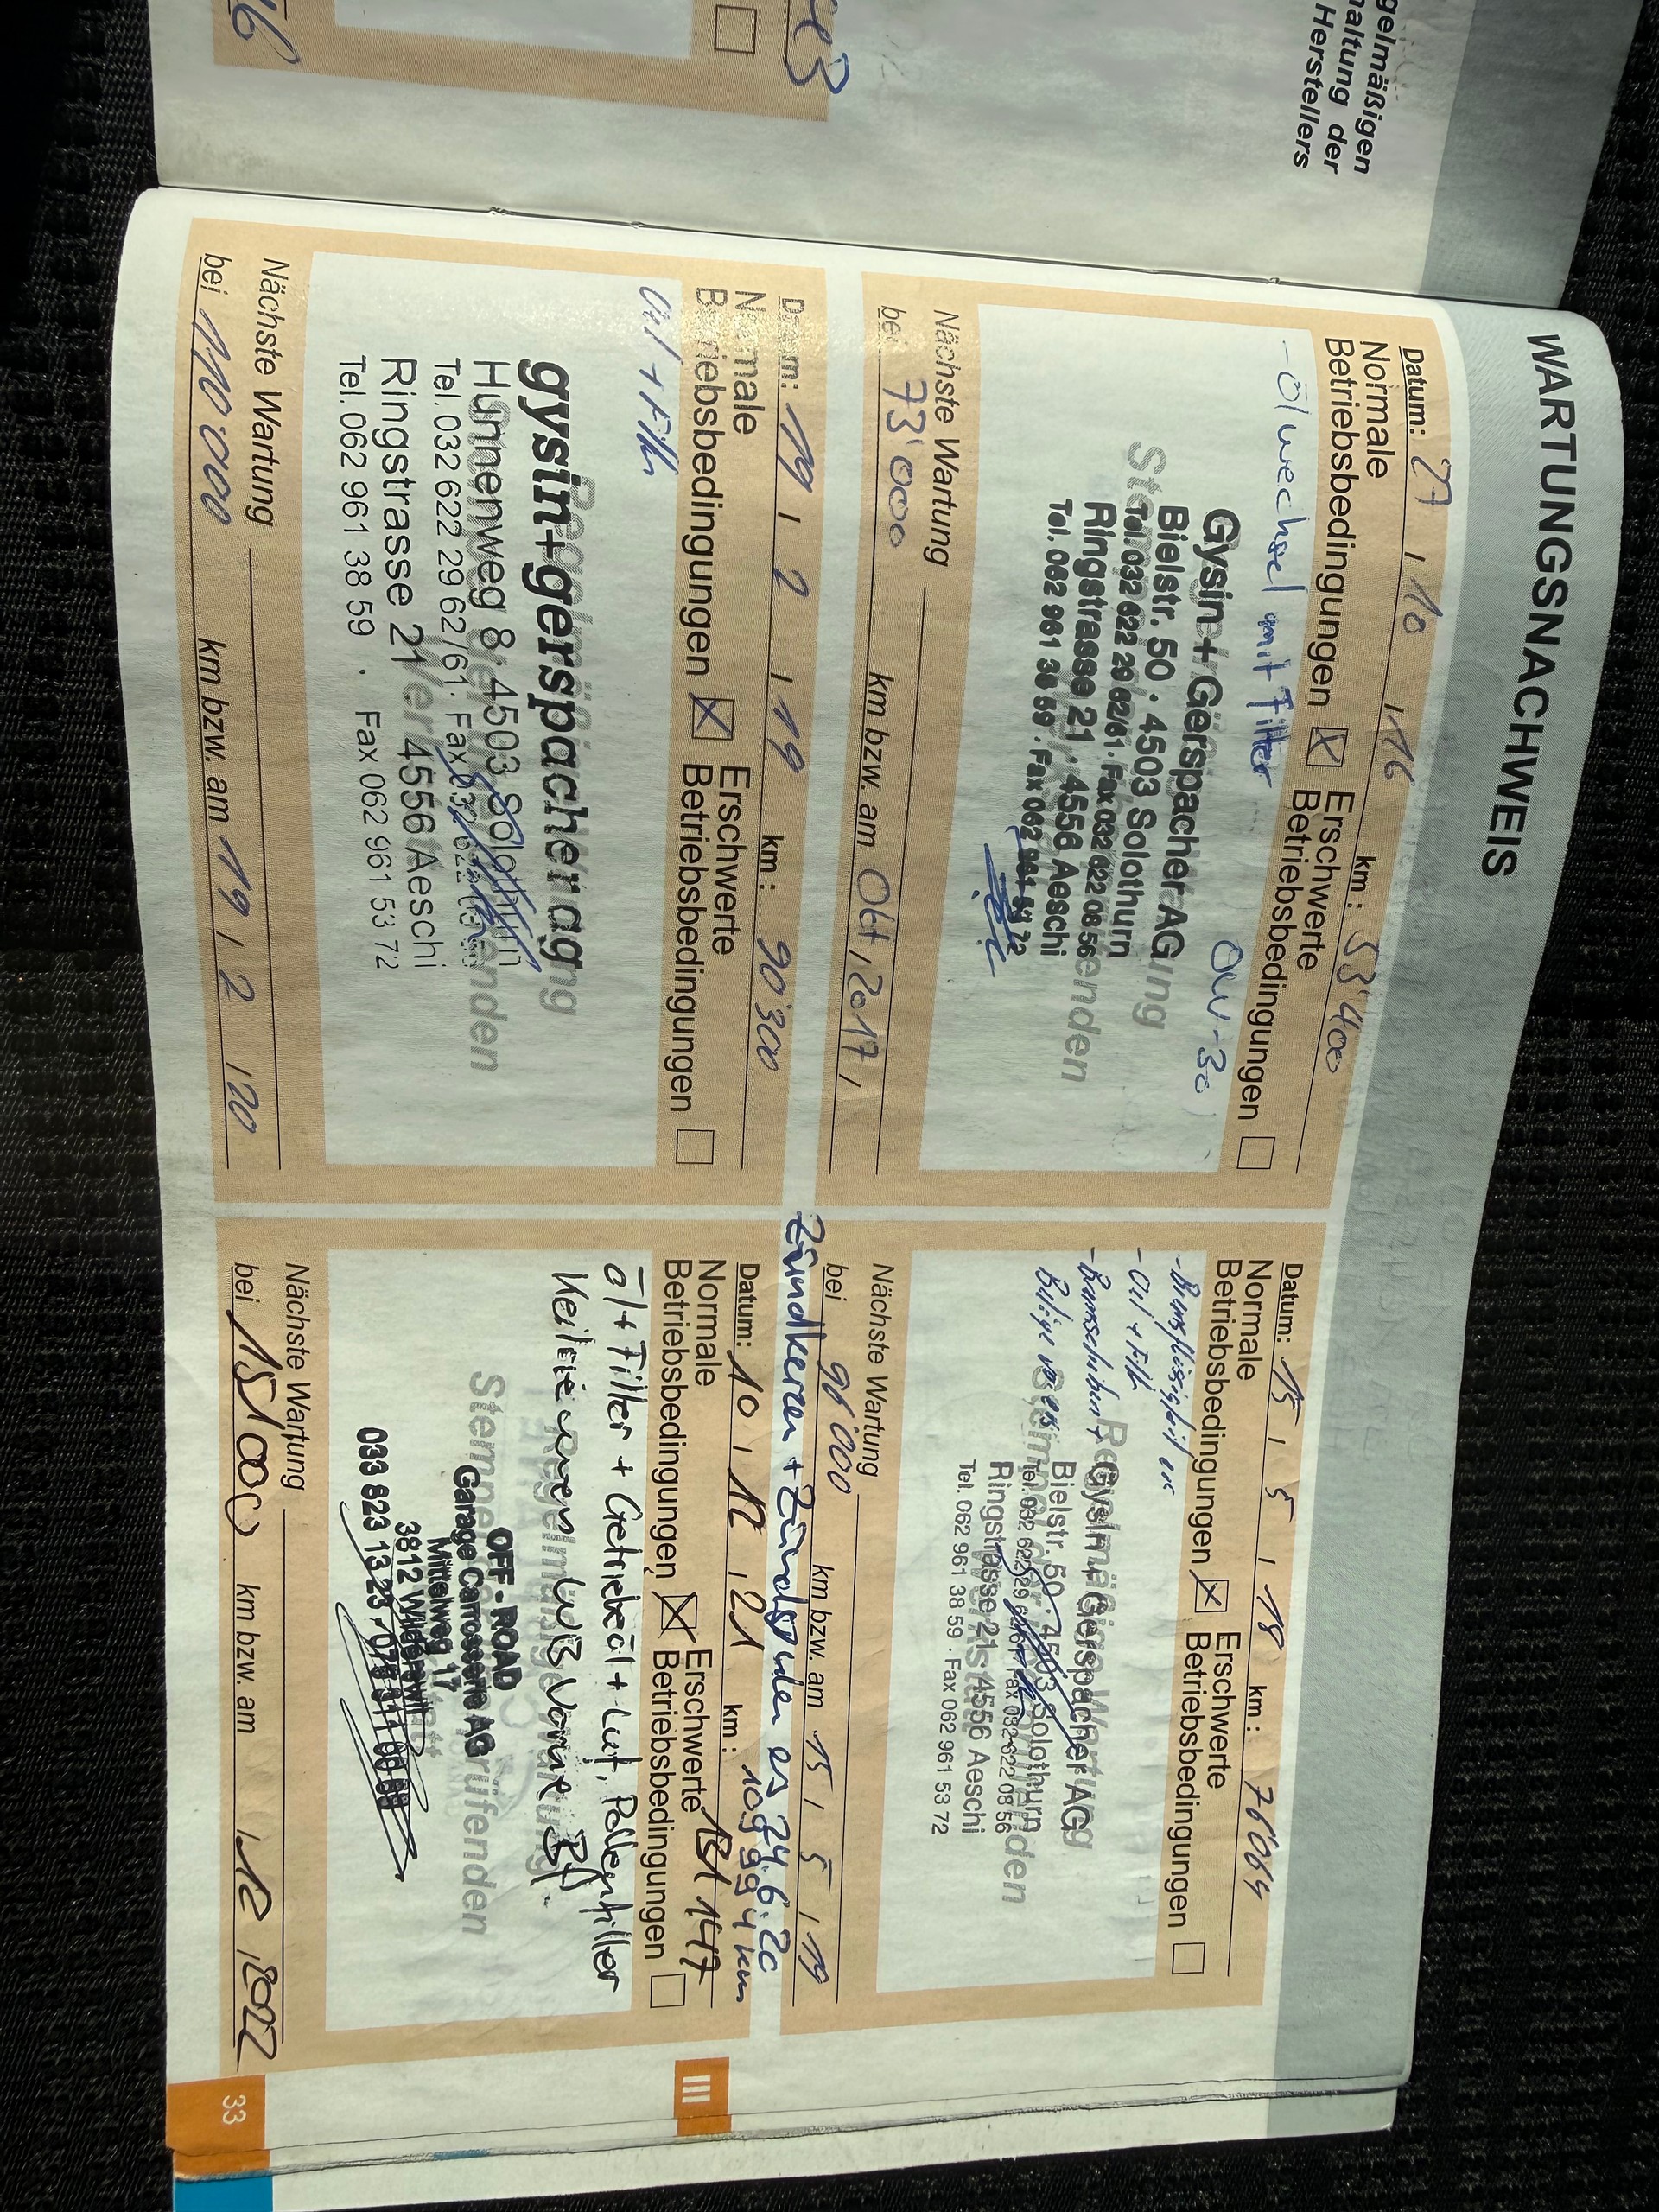 gelmäßigen
haltung der
Herstellers
WARTUNGSNACHWEIS
Datum: 27 / 10 / 16 km : 53'400
Normale
Betriebsbedingungen
Erschwerte
Betriebsbedingungen
- Ölwechsel mit Filter
0W-30
Gysin + Gerspacher AG
Bielstr. 50 · 4503 Solothurn
Tel. 032 622 29 62/61 · Fax 032 622 08 56
Ringstrasse 21 · 4556 Aeschi
Tel. 062 961 38 59 · Fax 062 961 53 72
Nächste Wartung
bei 73'000 km bzw. am Okt / 2017 /
Datum: 15 / 5 / 18 km : 76'064
Normale
Betriebsbedingungen
Erschwerte
Betriebsbedingungen
- Bremsflüssigkeit ers
- Oel + Filt
- Bremsscheiben +
Beläge vo ers
Gysin + Gerspacher AG
Bielstr. 50 · 4503 Solothurn
Tel. 032 622 29 62/61 · Fax 032 622 08 56
Ringstrasse 21 · 4556 Aeschi
Tel. 062 961 38 59 · Fax 062 961 53 72
Nächste Wartung
bei 96'000 km bzw. am 15 / 5 / 19
Datum: 19 / 2 / 19 km : 90'300
Normale
Betriebsbedingungen
Erschwerte
Betriebsbedingungen
Oel + Filt
gysin+gerspacher ag
Hunnenweg 8 · 4503 Solothurn
Tel. 032 622 29 62/61 · Fax 032 622
Ringstrasse 21 · 4556 Aeschi
Tel. 062 961 38 59 · Fax 062 961 53 72
Nächste Wartung
bei 110'000 km bzw. am 19 / 2 / 20
Zündkerzen + Zündspulen es 24.6.20
109 994 km
Datum: 10 / 12 / 21 km : 131 147
Normale
Betriebsbedingungen
Erschwerte
Betriebsbedingungen
Öl + Filter + Getriebeöl + Luft, Pollenfilter
Keilriemen
vorne
OFF - ROAD
Garage Carrosserie AG
Mittelweg 17
3812 Wilderswil
033 823 13 23
Nächste Wartung
bei 151000 km bzw. am / 12 / 2022
III
33